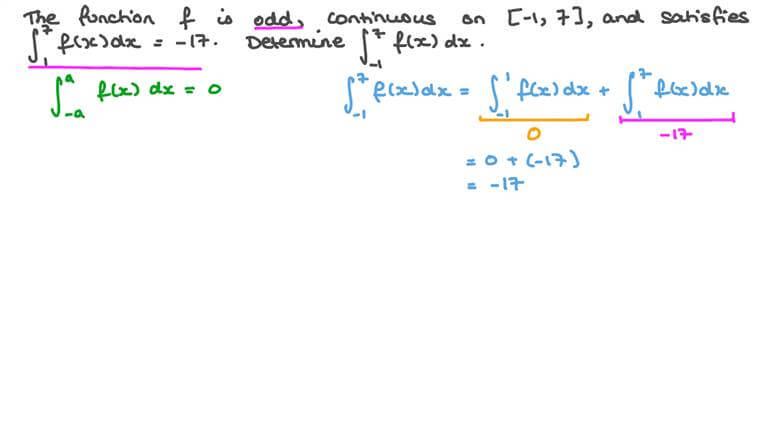 The function f is odd, continuous on [-1, 7], and satisfies
∫₁⁷ f(x) dx = -17. Determine ∫₋₁⁷ f(x) dx.
∫₋ₐᵃ f(x) dx = 0
∫₋₁⁷ f(x) dx = ∫₋₁¹ f(x) dx + ∫₁⁷ f(x) dx
0
-17
= 0 + (-17)
= -17